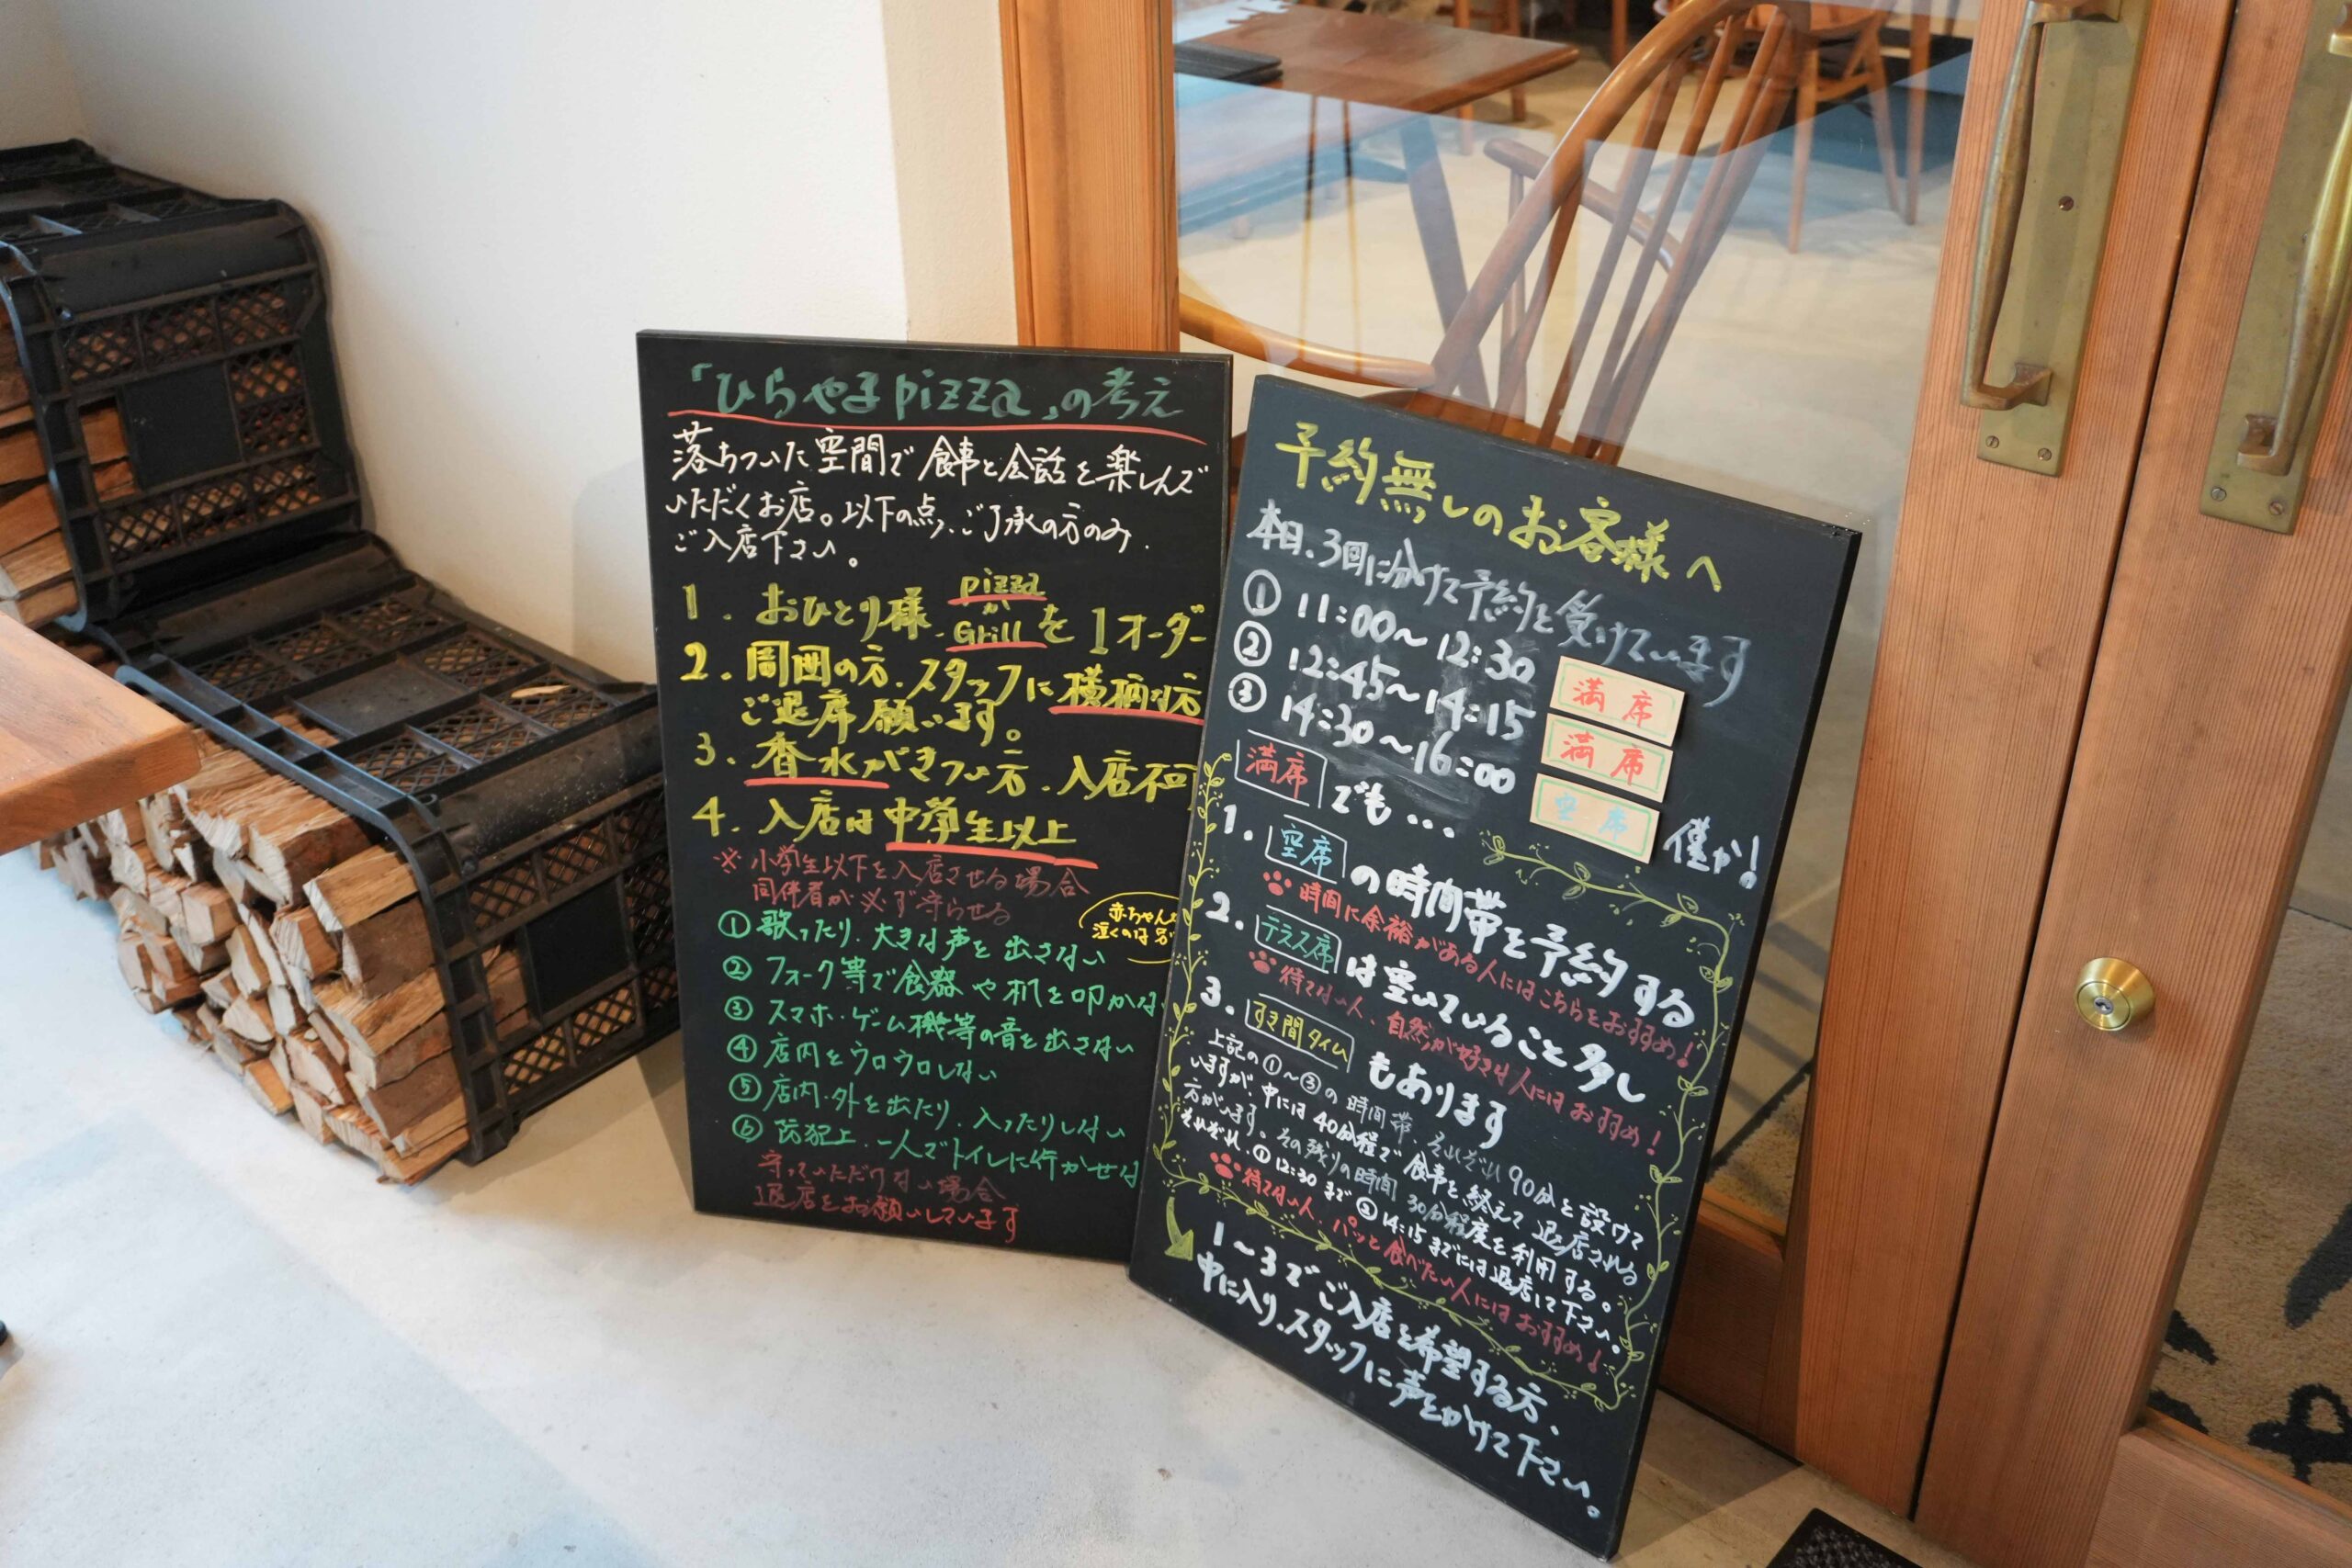 「ひらやまpizza」の考え
落ちついた空間で食事と会話を楽しんで
いただくお店。以下の点、ご了承の方のみ
ご入店下さい。
1. おひとり様、pizza か Grill を1オーダー
2. 周囲の方、スタッフに横柄な方
ご退席願います。
3. 香水がきつい方、入店不可
4. 入店は中学生以上
※小学生以下を入店させる場合
同伴者が必ず守らせる
赤ちゃんが
泣くのは別
① 歌ったり、大きな声を出さない
② フォーク等で食器や机を叩かない
③ スマホ・ゲーム機等の音を出さない
④ 店内をウロウロしない
⑤ 店内・外を出たり、入ったりしない
⑥ 防犯上、一人でトイレに行かせな
守っていただけない場合
退店をお願いしています
予約無しのお客様へ
本日、3回に分けて予約を受けています
① 11:00〜12:30 満席
② 12:45〜14:15 満席
③ 14:30〜16:00 空席 僅か!
満席でも...
1. 空席の時間帯を予約する
時間に余裕がある人にはこちらをおすすめ!
2. テラス席は空いていること多し
待てない人、自然が好きな人にはおすすめ!
3. すき間タイムもあります
上記の①〜③の時間帯、それぞれ90分を設けて
いますが、中には40分程で食事を終えて退店される
方がいます。その残りの時間30分程度を利用する。
それぞれ、①12:30まで ②14:15までには退店して下さい。
待てない人、パッと食べたい人にはおすすめ!
1〜3でご入店を希望する方、
中に入り、スタッフに声をかけて下さい。